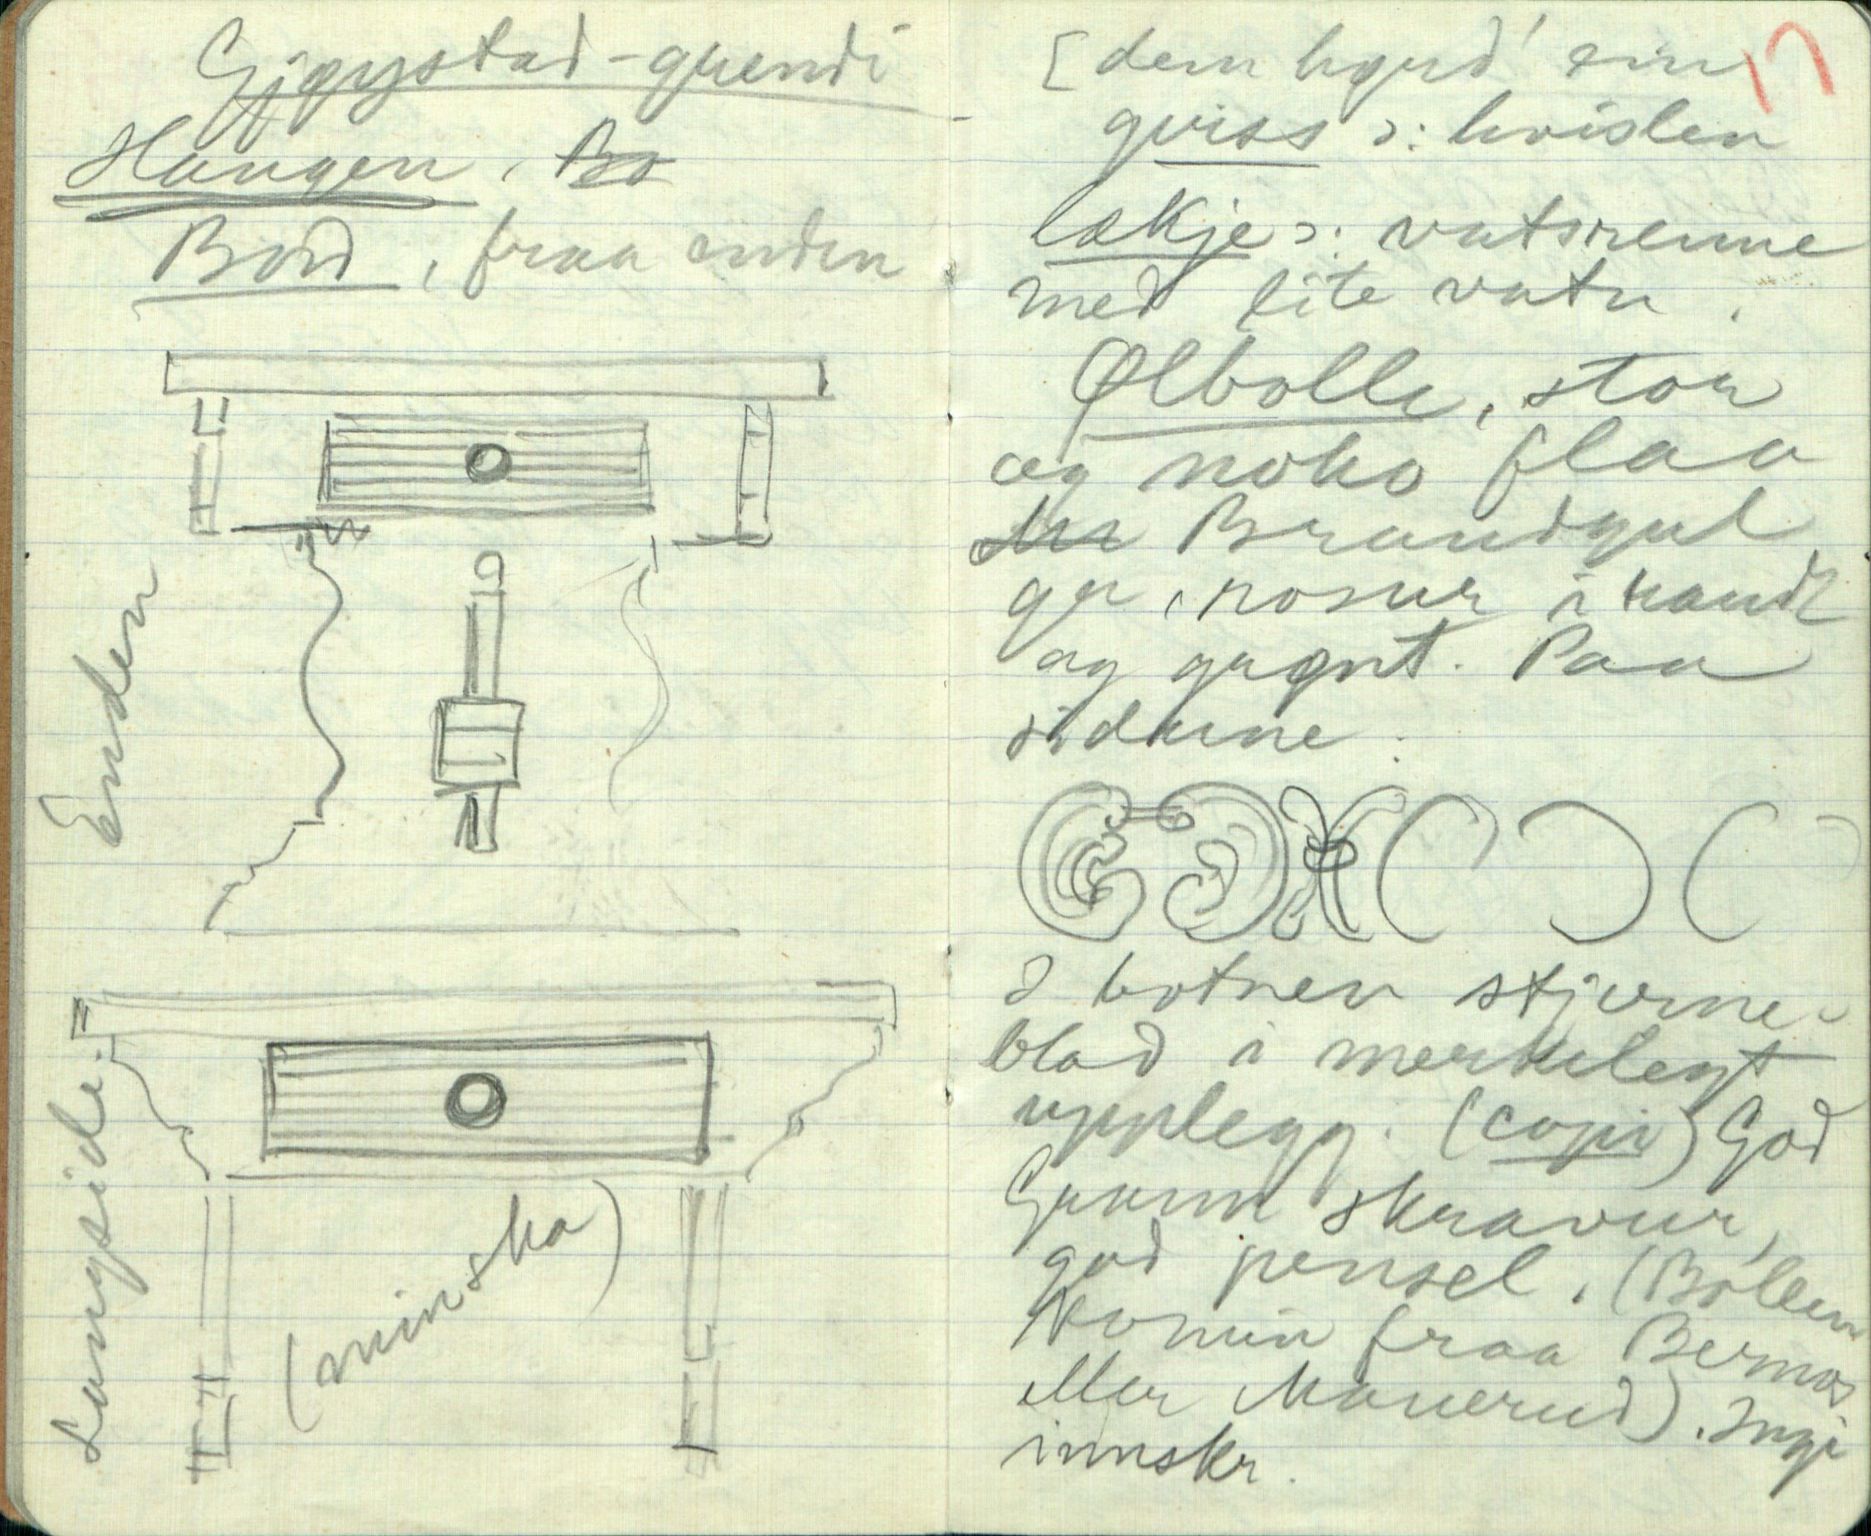 Gjøystad-grendi
Haugen, Bo
Bord, fraa enden
Enden
Langside.
(minska)
[dem høyrd' ein
gviss ɔ: hvislen
lækje ɔ: vatsrenne
med lite vatn.
Ølbolle, stor
og noko flaa
Brandgul
ger, rosur i raudt
og grønt. Paa
sidune:
I botnen stjerne-
blad i merkelegt
upplegg. (copi) God
Graann skravur,
god pensel. (Bollen
komin fraa Bermos
eller Manerud). Ingi
innskr.
17